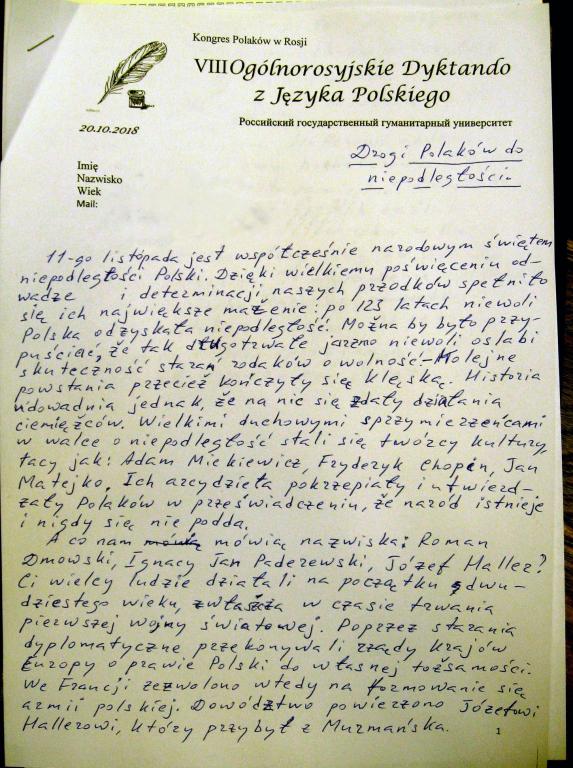 Kongres Polaków w Rosji
VIII Ogólnorosyjskie Dyktando
z Języka Polskiego
20.10.2018
Российский государственный гуманитарный университет
Drogi Polaków do
niepodległości.
Imię
Nazwisko
Wiek
Mail:
11-go listopada jest współcześnie narodowym świętem
niepodległości Polski. Dzięki wielkiemu poświęceniu od-
wadze i determinacji, naszych przodków spełniło
się ich największe mażenie: po 123 latach niewoli
Polska odzyskała niepodległość. Można by było przy-
puścić, że tak długotrwałe jarzmo niewoli osłabi
skuteczność starań rodaków o wolność. Kolejne
powstania przecież kończyły się klęską. Historia
udowadnia jednak, że na nic się zdały działania
ciemięzców. Wielkimi duchowymi sprzymierzeńcami
w walce o niepodległość stali się twórcy kultury,
tacy jak: Adam Mickiewicz, Fryderyk Chopin, Jan
Matejko. Ich arcydzieła pokrzepiały i utwierd-
zały Polaków w przeświadczeniu, że naród istnieje
i nigdy się nie podda.
A co nam mówią mówią nazwiska: Roman
Dmowski, Ignacy Jan Paderewski, Józef Haller?
Ci wielcy ludzie działali na początku dwu-
dziestego wieku, zwłaszcza w czasie trwania
pierwszej wojny światowej. Poprzez starania
dyplomatyczne przekonywali rządy krajów
Europy o prawie Polski do własnej tożsamości.
We Francji zezwolono wtedy na formowanie się
armii polskiej. Dowództwo powierzono Józefowi
Hallerowi, który przybył z Murmańska.
1